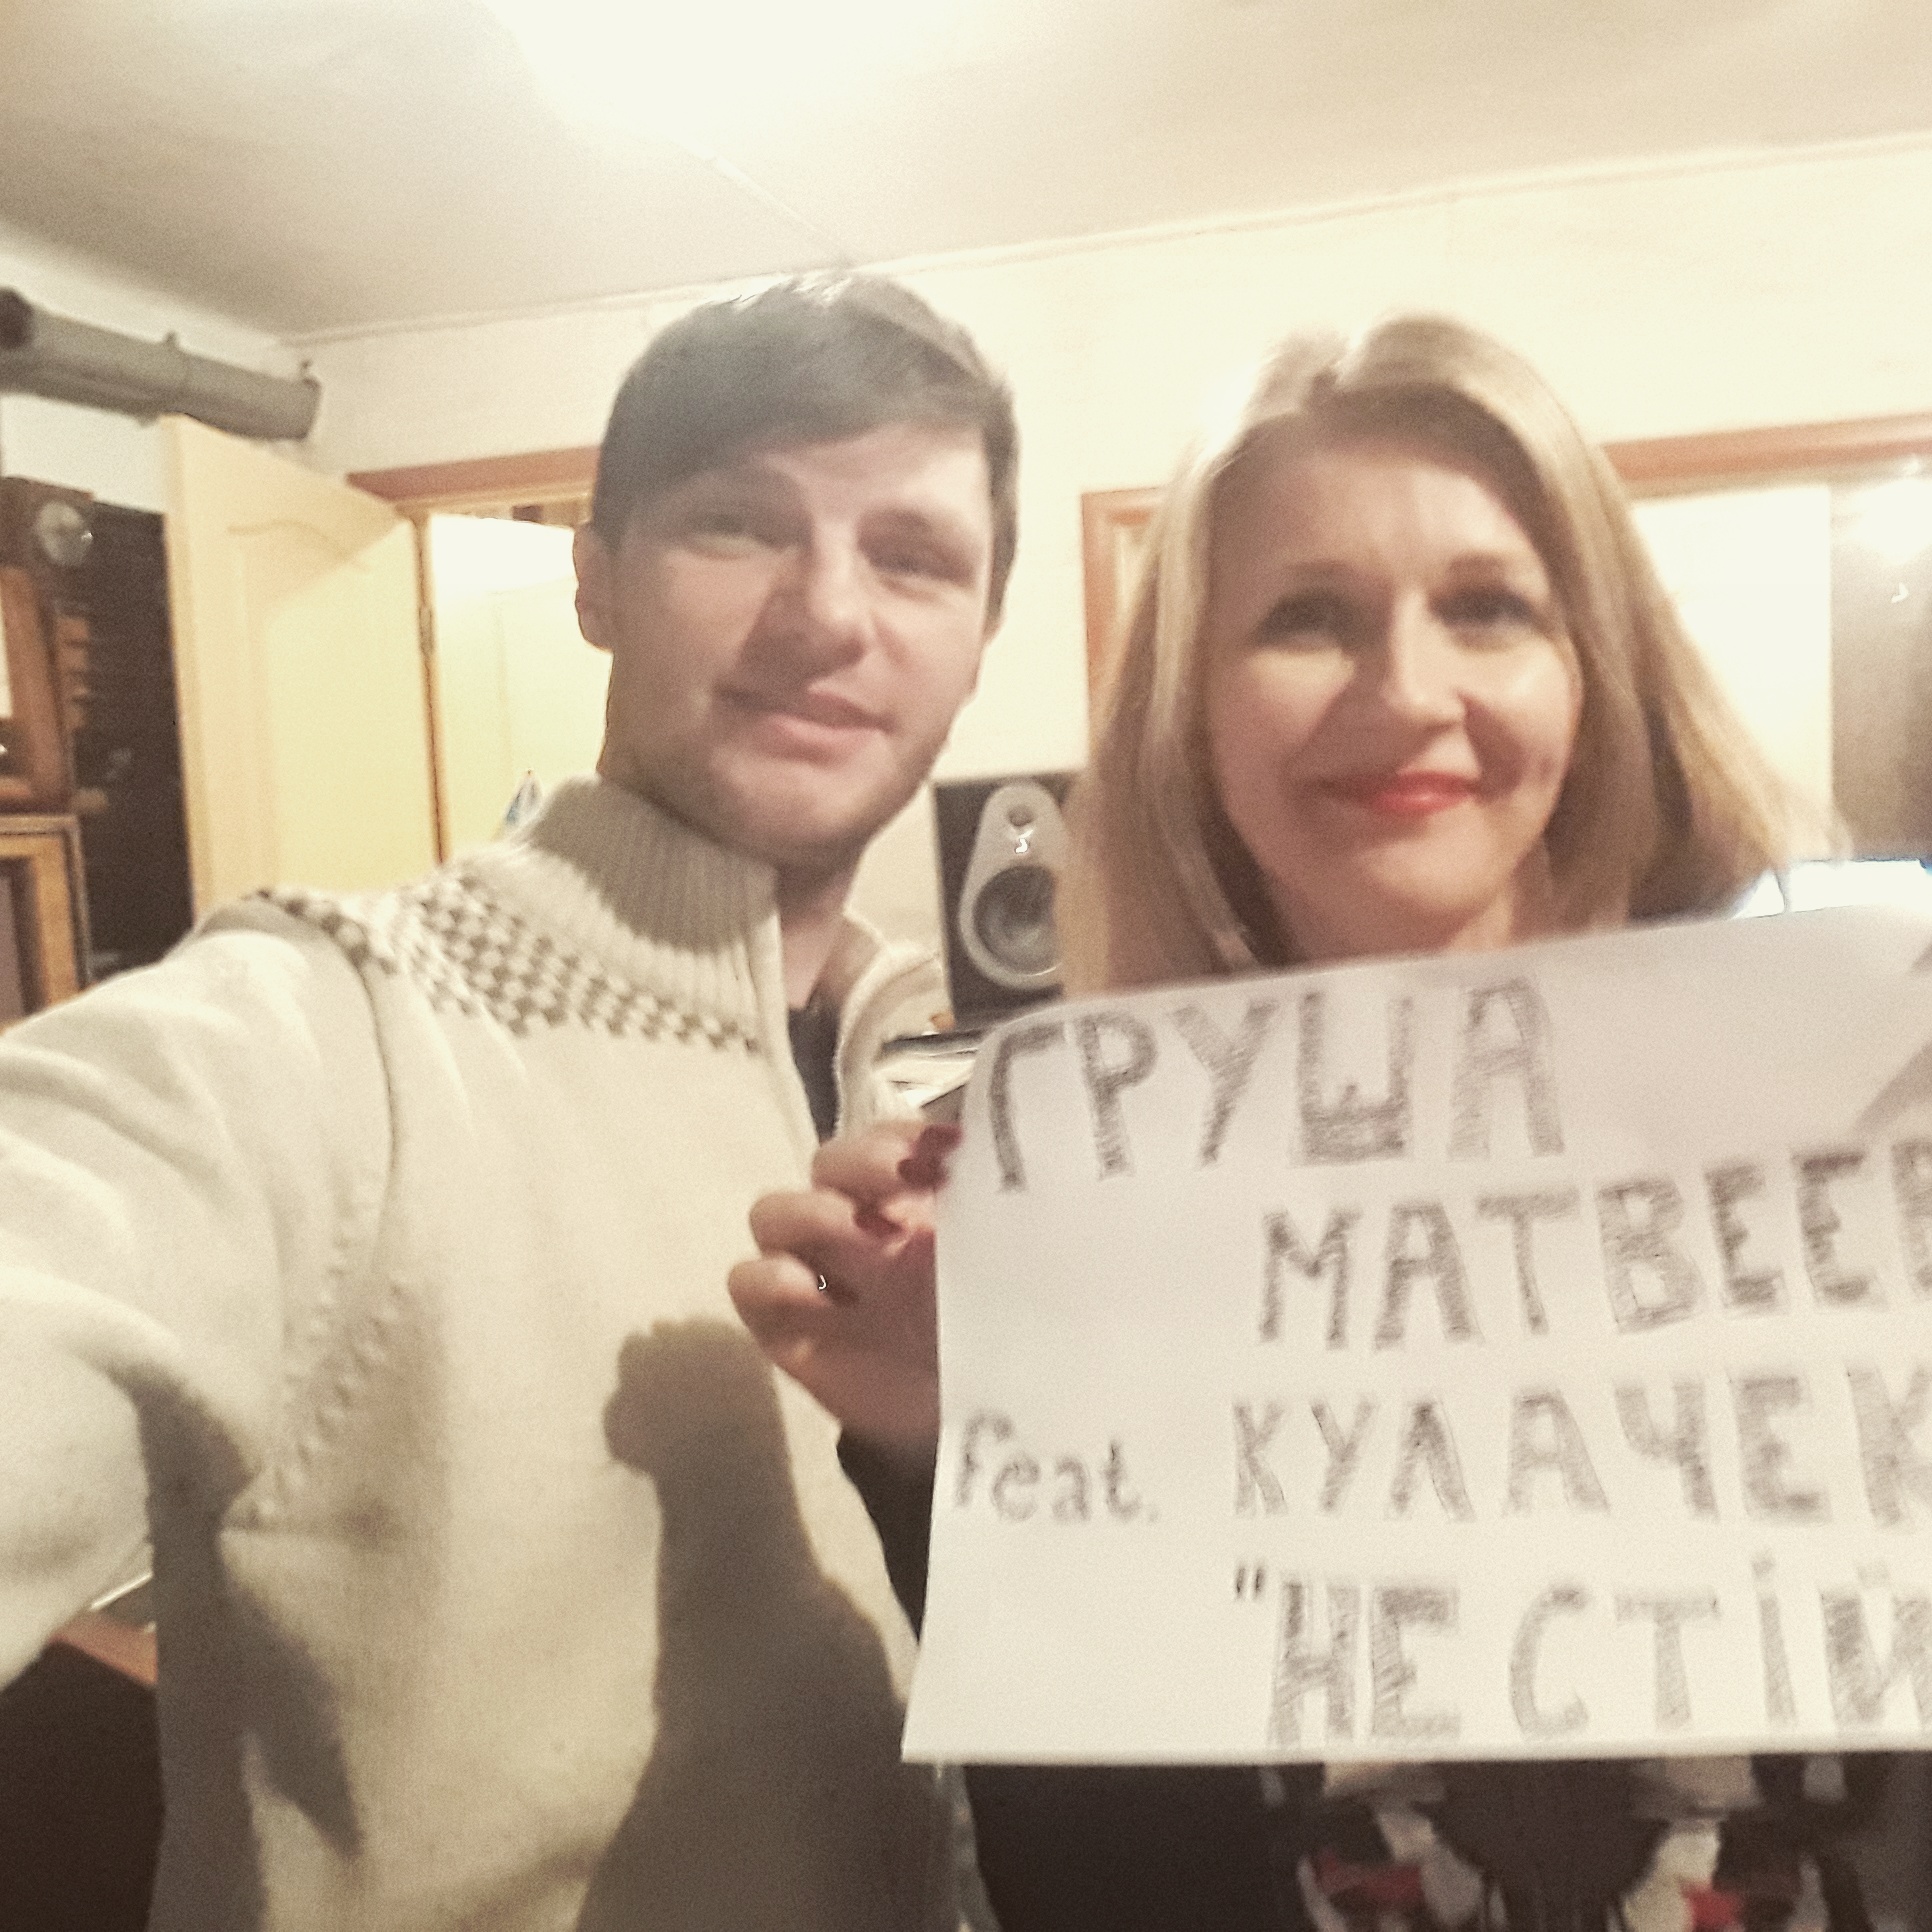 ГРУША
МАТВЕЕВ
feat. КУЛАЧЕК
"НЕ СТІЙ